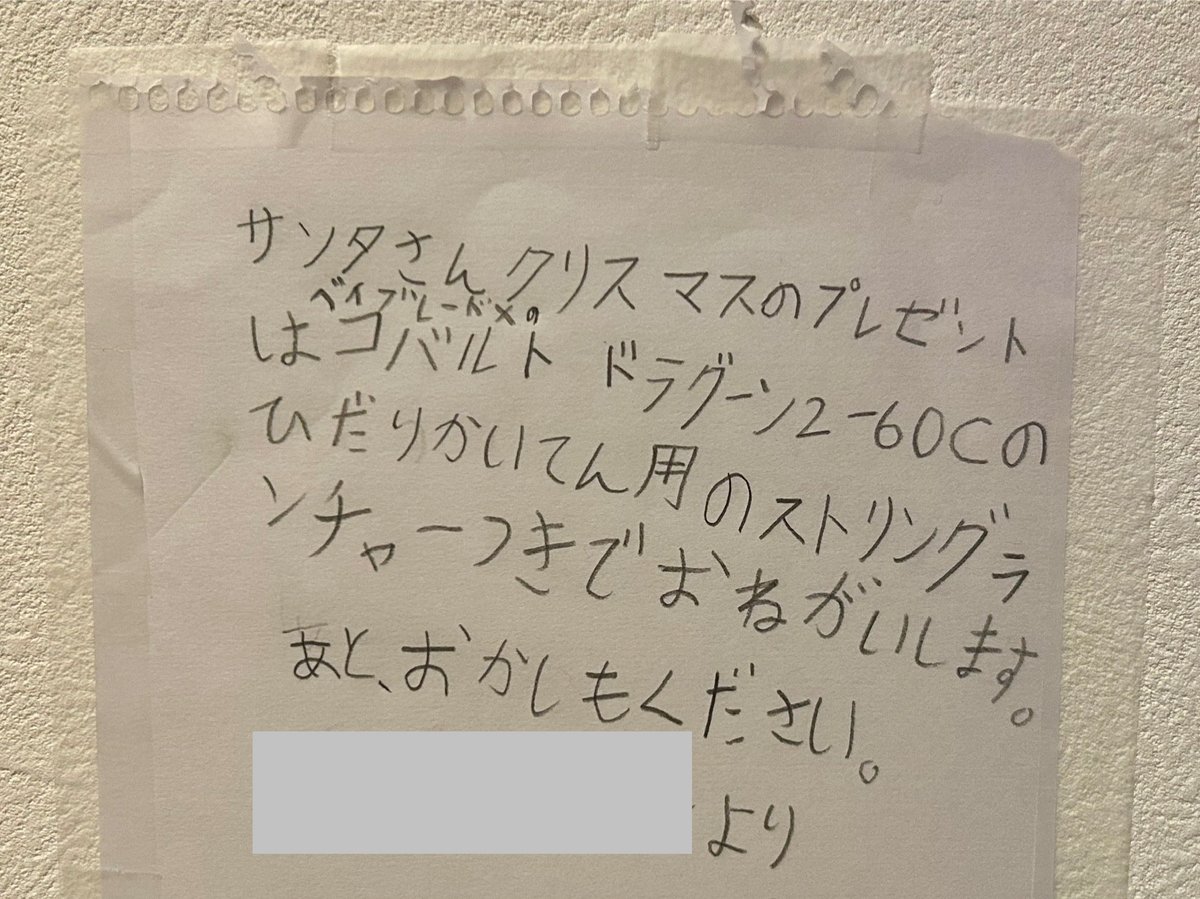 サンタさんクリスマスのプレゼント
ベイブレードXの
はコバルト ドラグーン2-60Cの
ひだりかいてん用のストリングラ
ンチャーつきでおねがいします。
あと、おかしもください。
より